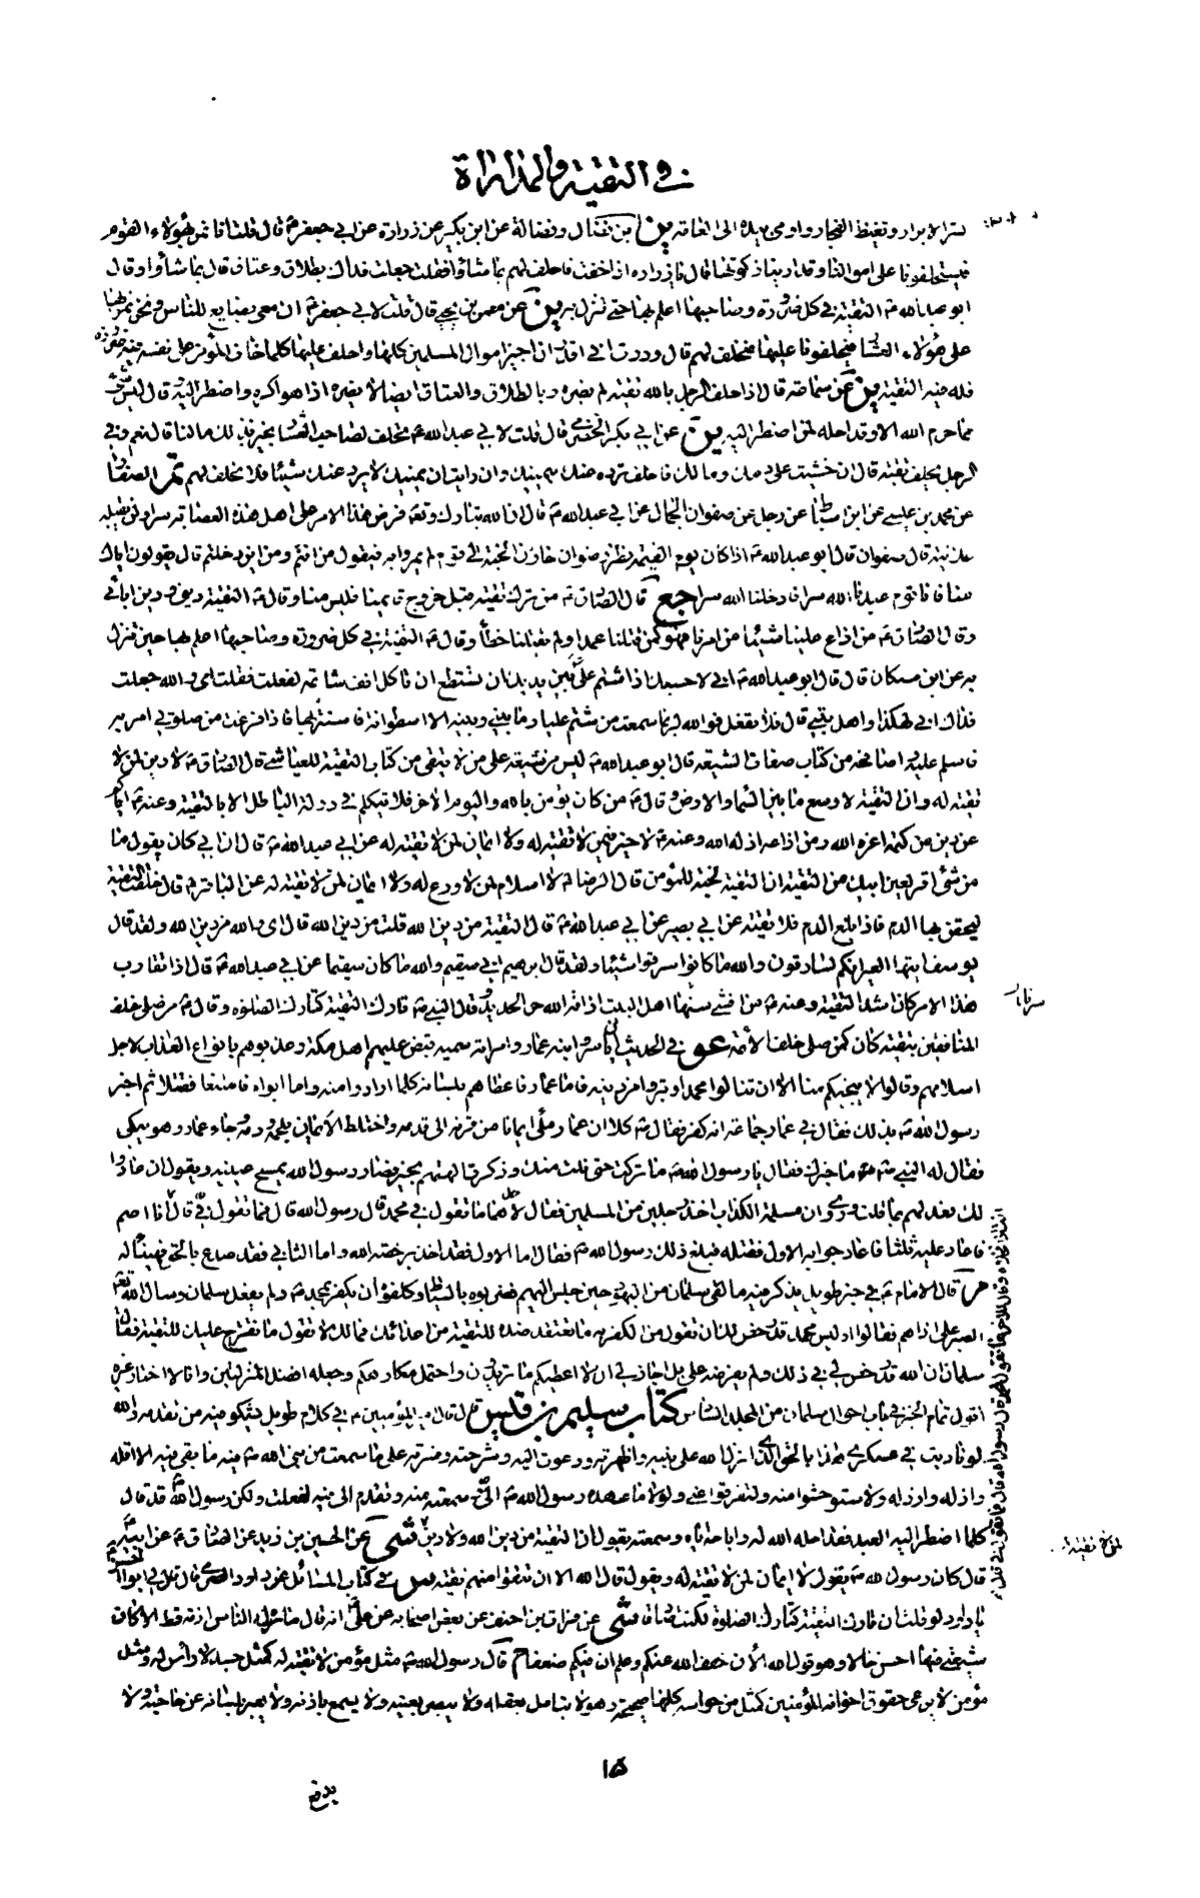 في التقية والمداراة
ستر الابرار وتغيظ الفجار واومى بيده الى العامة ين ابن فضال وفضالة عن ابن بكير عن زرارة عن ابي جعفر ع قال قلت انا نمر بهؤلاء القوم
فيستحلفونا على اموالنا وقد ادينا زكوتها قال فقال يا زرارة اذا خفت فاحلف لهم بما شاؤا فقلت جعلت فداك بطلاق وعتاق قال بما شاؤا وقال
ابو عبد الله ع التقية في كل ضرورة وصاحبها اعلم بها حين تنزل به ين عن معمر بن يحيى قال قلت لابي جعفر ع ان معي بضايع للناس ونحن نمر بها
على هؤلاء العشار فيحلفونا عليها فنحلف لهم قال وددت اني اقدر ان اجيز اموال المسلمين كلها واحلف عليها كلما خاف المؤمن على نفسه فيه ضرورة
فله فيه التقية ين عن سماعة قال اذا حلف الرجل بالله تقية لم يضره وبالطلاق والعتاق ايضا لا يضره اذا هو اكره واضطر اليه وقال ليس شئ
مما حرم الله الا وقد احله لمن اضطر اليه ين عن ابي بكر الحضرمي قال قلت لابي عبد الله ع نحلف لصاحب العشار نجيز بذلك مالنا قال نعم وفي
الرجل يحلف تقية قال ان خشيت على دمك ومالك فاحلف ترده عنك بيمينك وان رايت ان يمينك لا يرد عنك شيئا فلا تحلف لهم
عن محمد بن عيسى عن ابن اسباط عن رجل عن صفوان الجمال عن ابي عبد الله ع قال ان الله تبارك وتعالى فرض هذا الامر على اهل هذه العصابة سرا ولن يقبله
علانية قال صفوان قال ابو عبد الله ع اذا كان يوم القيمة نظر رضوان خازن الجنة الى قوم لم يمروا به فيقول من انتم ومن اين دخلتم قال يقولون اياك
عنا فانا قوم عبدنا الله سرا فادخلنا الله سرا جع قال الصادق ع من ترك تقية قبل خروج قائمنا فليس منا وقال ع التقية ديني ودين ابائي
وقال الصادق ع من اذاع علينا شيئا من امرنا فهو كمن قتلنا عمدا ولم يقتلنا خطأ وقال ع التقية في كل ضرورة وصاحبها اعلم بها حين تنزل
به عن ابن مسكان قال قال ابو عبد الله ع اني لاحسبك اذا شتم علي بين يديك ان تستطع ان تاكل انف شاتمه لفعلت فقلت اي والله جعلت
فداك اني لهكذا واهل بيتي قال فلا تفعل فوالله لربما سمعت من شتم عليا وما بيني وبينه الا اسطوانة فاستتر بها فاذا فرغت من صلوتي امر به
فاسلم عليه واصافحه من كتاب صفات الشيعة قال ابو عبد الله ع ليس من شيعة علي من لا يتقي من كتاب التقية للعياشي قال الصادق ع لا دين لمن لا
تقية له وان التقية لاوسع ما بين السماء والارض وقال ع من كان يؤمن بالله واليوم الاخر فلا يتكلم في دولة الباطل الا بالتقية وعنه ع
على دين من كتمه اعزه الله ومن اذاعه اذله الله وعنه ع لا خير فيمن لا تقية له ولا ايمان لمن لا تقية له عن ابي عبد الله ع قال ان ابي كان يقول ما
من شئ اقر لعين ابيك من التقية ان التقية لجنة للمؤمن قال الرضا ع لا اسلام لمن لا ورع له ولا ايمان لمن لا تقية له عن الباقر ع قال جعلت التقية
ليحقن بها الدم فاذا بلغ الدم فلا تقية عن ابي بصير عن ابي عبد الله ع قال التقية من دين الله قلت من دين الله قال اي والله من دين الله ولقد قال
يوسف ايتها العير انكم لسارقون والله ما كانوا سرقوا شيئا ولقد قال ابرهيم اني سقيم والله ما كان سقيما عن ابي عبد الله ع قال اذا تقارب
هذا الامر كان اشد للتقية وعنه ع من افشى سرنا اهل البيت اذاقه الله حر الحديد وقال النبي ص تارك التقية كتارك الصلوة وقال ع من صلى خلف
المنافقين بتقية كان كمن صلى خلف الائمة غو في الحديث ان ياسرا وابنه عمار وامراته سمية قبض عليهم اهل مكة وعذبوهم بانواع العذاب لاجل
اسلامهم وقالوا لا ينجيكم منا الا ان تنالوا محمدا وتبرؤا من دينه فاما عمار فاعطاهم بلسانه كلما ارادوا منه واما ابواه فامتنعا فقتلا ثم اخبر
رسول الله ص بذلك فقال في عمار جماعة انه كفر فقال ص كلا ان عمارا ملئ ايمانا من قرنه الى قدمه واختلط الايمان بلحمه ودمه وجاء عمار وهو يبكي
فقال له النبي ص ما خبرك فقال يا رسول الله ص ما تركت حتى نلت منك وذكرت الهتهم بخير فصار رسول الله يمسح عينيه ويقول ان عادوا
لك فعد لهم بما قلت وروي ان مسيلمة الكذاب اخذ رجلين من المسلمين فقال لاحدهما ما تقول في محمد قال رسول الله قال فما تقول في قال انا اصم
فاعاد عليه ثلثا فاعاد جوابه الاول فقتله فبلغ ذلك رسول الله ص فقال اما الاول فقد اخذ برخصة الله واما الثاني فقد صدع بالحق فهنيئا له
م قال الامام ع في خبر طويل يذكر فيه ما لقي سلمان من اليهود حين جلس اليهم فضربوه بالسياط وكلفوه ان يكفر بمحمد ص ولم يفعل سلمان وسال الله تعالى
الصبر على اذاهم فقالوا اوليس محمد قد رخص لك ان تقول من الكفر به ما تعتقد ضده للتقية من اعدائك فمالك لا تقول ما نقترح عليك للتقية فقال
سلمان ان الله قد رخص لي في ذلك ولم يفرضه علي بل اجاز لي ان لا اعطيكم ما تريدون واحتمل مكارهكم وجعله افضل المنزلتين وانا لا اختار غيره
اقول تمام الخبر في باب احوال سلمان من المجلد السادس كتاب سليم بن قيس قال قال امير المؤمنين ع في كلام طويل يشكو فيه من تقدمه والله
لو ناديت في عسكري هذا بالحق الذي انزل الله على نبيه واظهرته ودعوت اليه وشرحته وفسرته على ما سمعت من نبي الله ص فيه ما بقي فيه الا اقله
واذله وارذله ولاستوحشوا منه ولتفرقوا عني ولولا ما عهده رسول الله ص الي وسمعته منه وتقدم الي فيه لفعلت ولكن رسول الله ص قد قال
كلما اضطر اليه العبد فقد احله الله له واباحه اياه وسمعته يقول ان التقية من دين الله ولا دين شى عن الحسين بن زيد عن الصادق ع عن ابيه ع
قال كان رسول الله ص يقول لا ايمان لمن لا تقية له ويقول قال الله الا ان تتقوا منهم تقية
يا داود لو قلت ان تارك التقية كتارك الصلوة لكنت صادقا شى عن بعض اصحابه عن علي انه قال
شيعتي فيها احسن حالا وهو قول الله الآن خفف الله عنكم وعلم ان فيكم ضعفا ح قال رسول الله ص مثل مؤمن لا تقية له كمثل جسد لا رأس له ومثل
مؤمن لا يرعى حقوق اخوانه المؤمنين كمثل من حواسه كلها صحيحة وهو لا يتامل بعقله ولا يبصر بعينه ولا يسمع باذنه ولا يعبر بلسانه عن حاجته ولا
لمن لا تقية له
١۵
يدفع